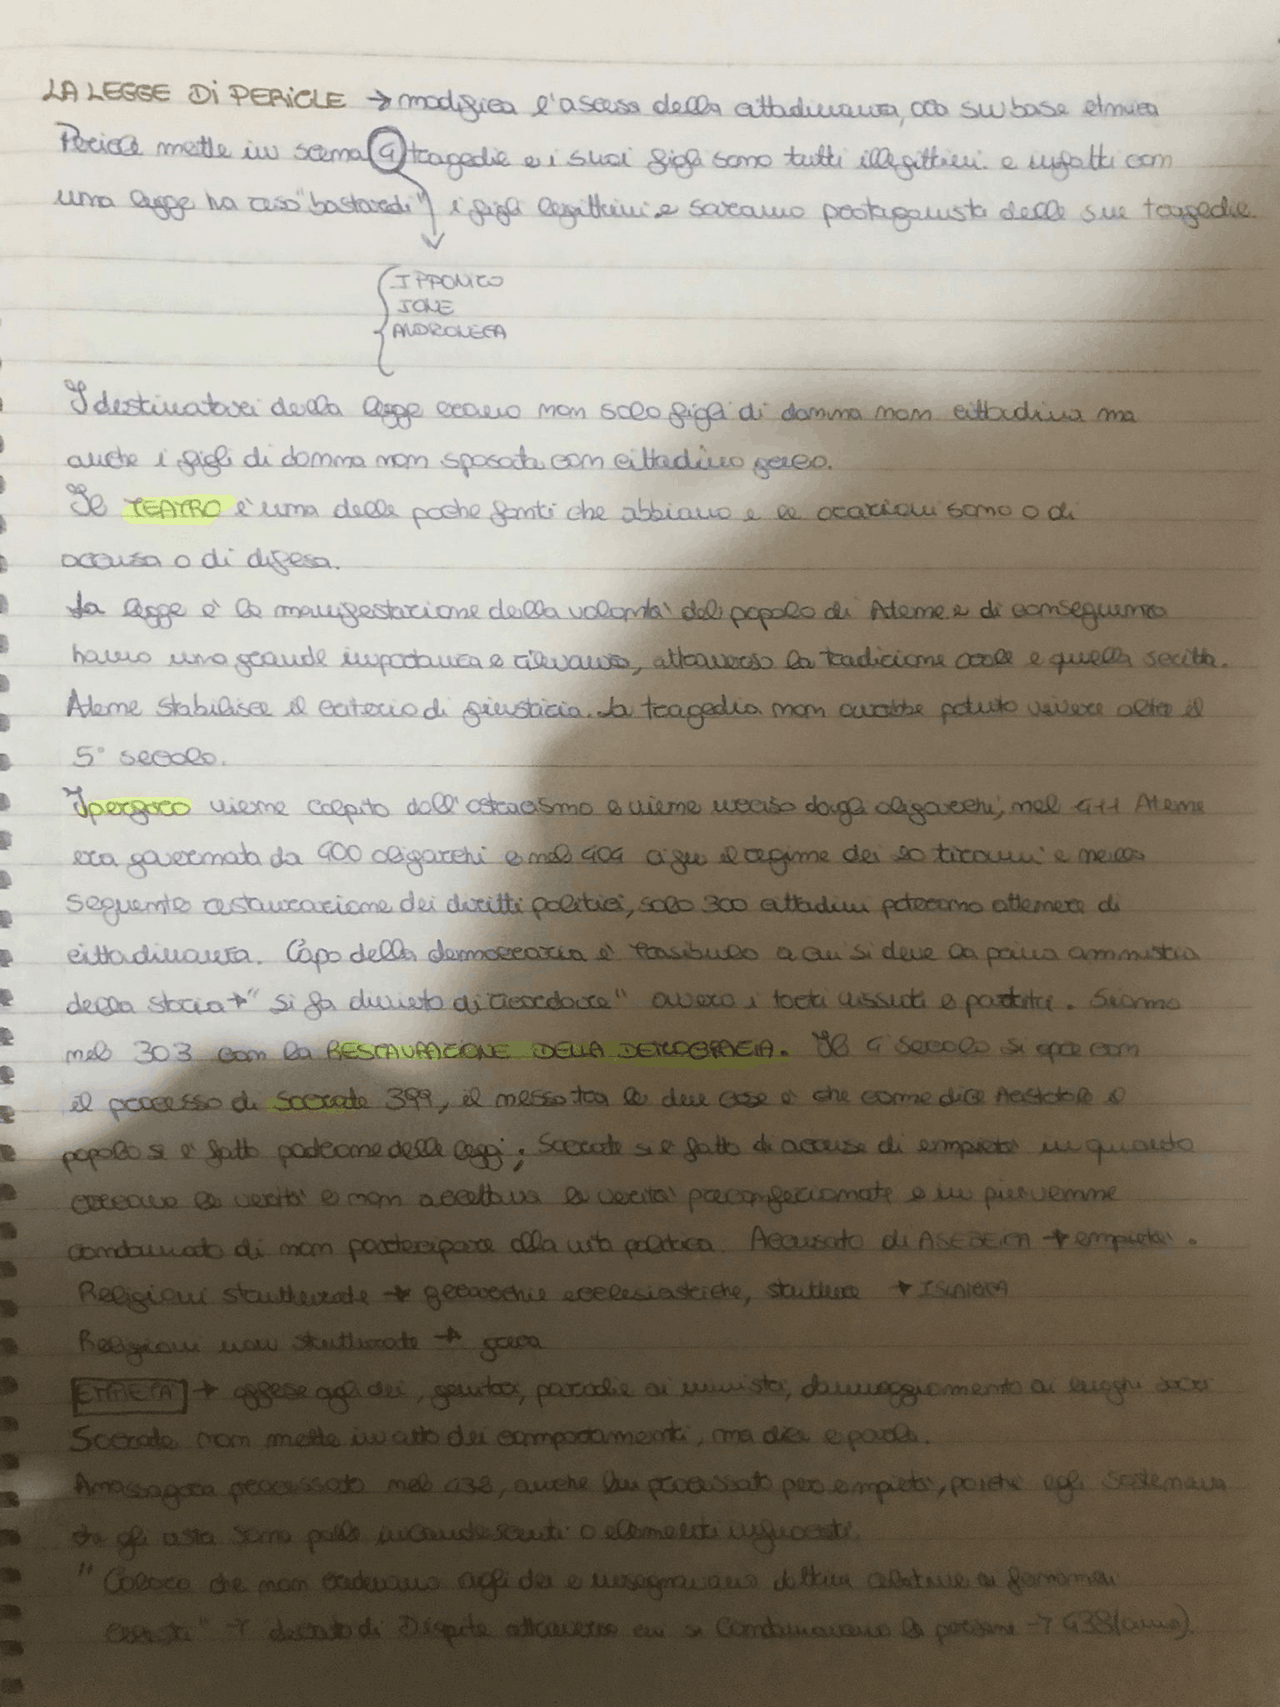 LA LEGGE DI PERICLE → modifica l'accesso della cittadinanza, ora su base etnica
Pericle mette in scena 4 tragedie e i suoi figli sono tutti illegittimi e infatti con
una legge ha reso "bastardi" i figli legittimi e saranno protagonisti delle sue tragedie.
IPPOLITO
IONE
ANDROMACA
I destinatari della legge erano non solo figli di donna non cittadina ma
anche i figli di donna non sposata con cittadino greco.
Il TEATRO è una delle poche fonti che abbiamo e le orazioni sono o di
accusa o di difesa.
La legge è la manifestazione della volontà del popolo di Atene e di conseguenza
hanno una grande importanza e rilevanza, attraverso la tradizione orale e quella scritta.
Atene stabilisce il criterio di giustizia. La tragedia non avrebbe potuto vivere oltre il
5° secolo.
viene colpito dall'ostracismo e viene ucciso dagli oligarchi, nel 411 Atene
era governata da 400 oligarchi e nel 404 il regime dei 30 tiranni e nella
seguente restaurazione dei diritti politici, solo 300 cittadini potranno ottenere di
cittadinanza. Capo della democrazia è Trasibulo a cui si deve la prima amnistia
della storia → "si fa divieto di ricordare" ovvero i torti vissuti e patiti. Siamo
nel 303 con la RESTAURAZIONE DELLA DEMOCRAZIA. Il 4 secolo si apre con
il processo di Socrate 399, il nesso tra le due cose è che come dice Aristotele il
popolo si è fatto padrone delle leggi; Socrate si è fatto di accuse di empietà in quanto
cercava la verità e non accettava la verità preconfezionate e in più venne
condannato di non partecipare alla vita politica. Accusato di ASEBEIA → empietà.
Religioni strutturate → gerarchie ecclesiastiche, strutture →
Religioni non strutturate → greca
EMPIETÀ → offese agli dei, genitori, parodie ai misteri, danneggiamento ai luoghi sacri
Socrate non mette in atto dei comportamenti, ma dice e parla.
Anassagora processato nel 438, anche lui processato per empietà, poiché egli sosteneva
che gli astri sono palle incandescenti o elementi infuocati.
"Coloro che non credevano agli dei e insegnavano dottrine relative ai fenomeni
celesti" → decreto di Diopite attraverso cui si condannavano le persone → 438 (anno)